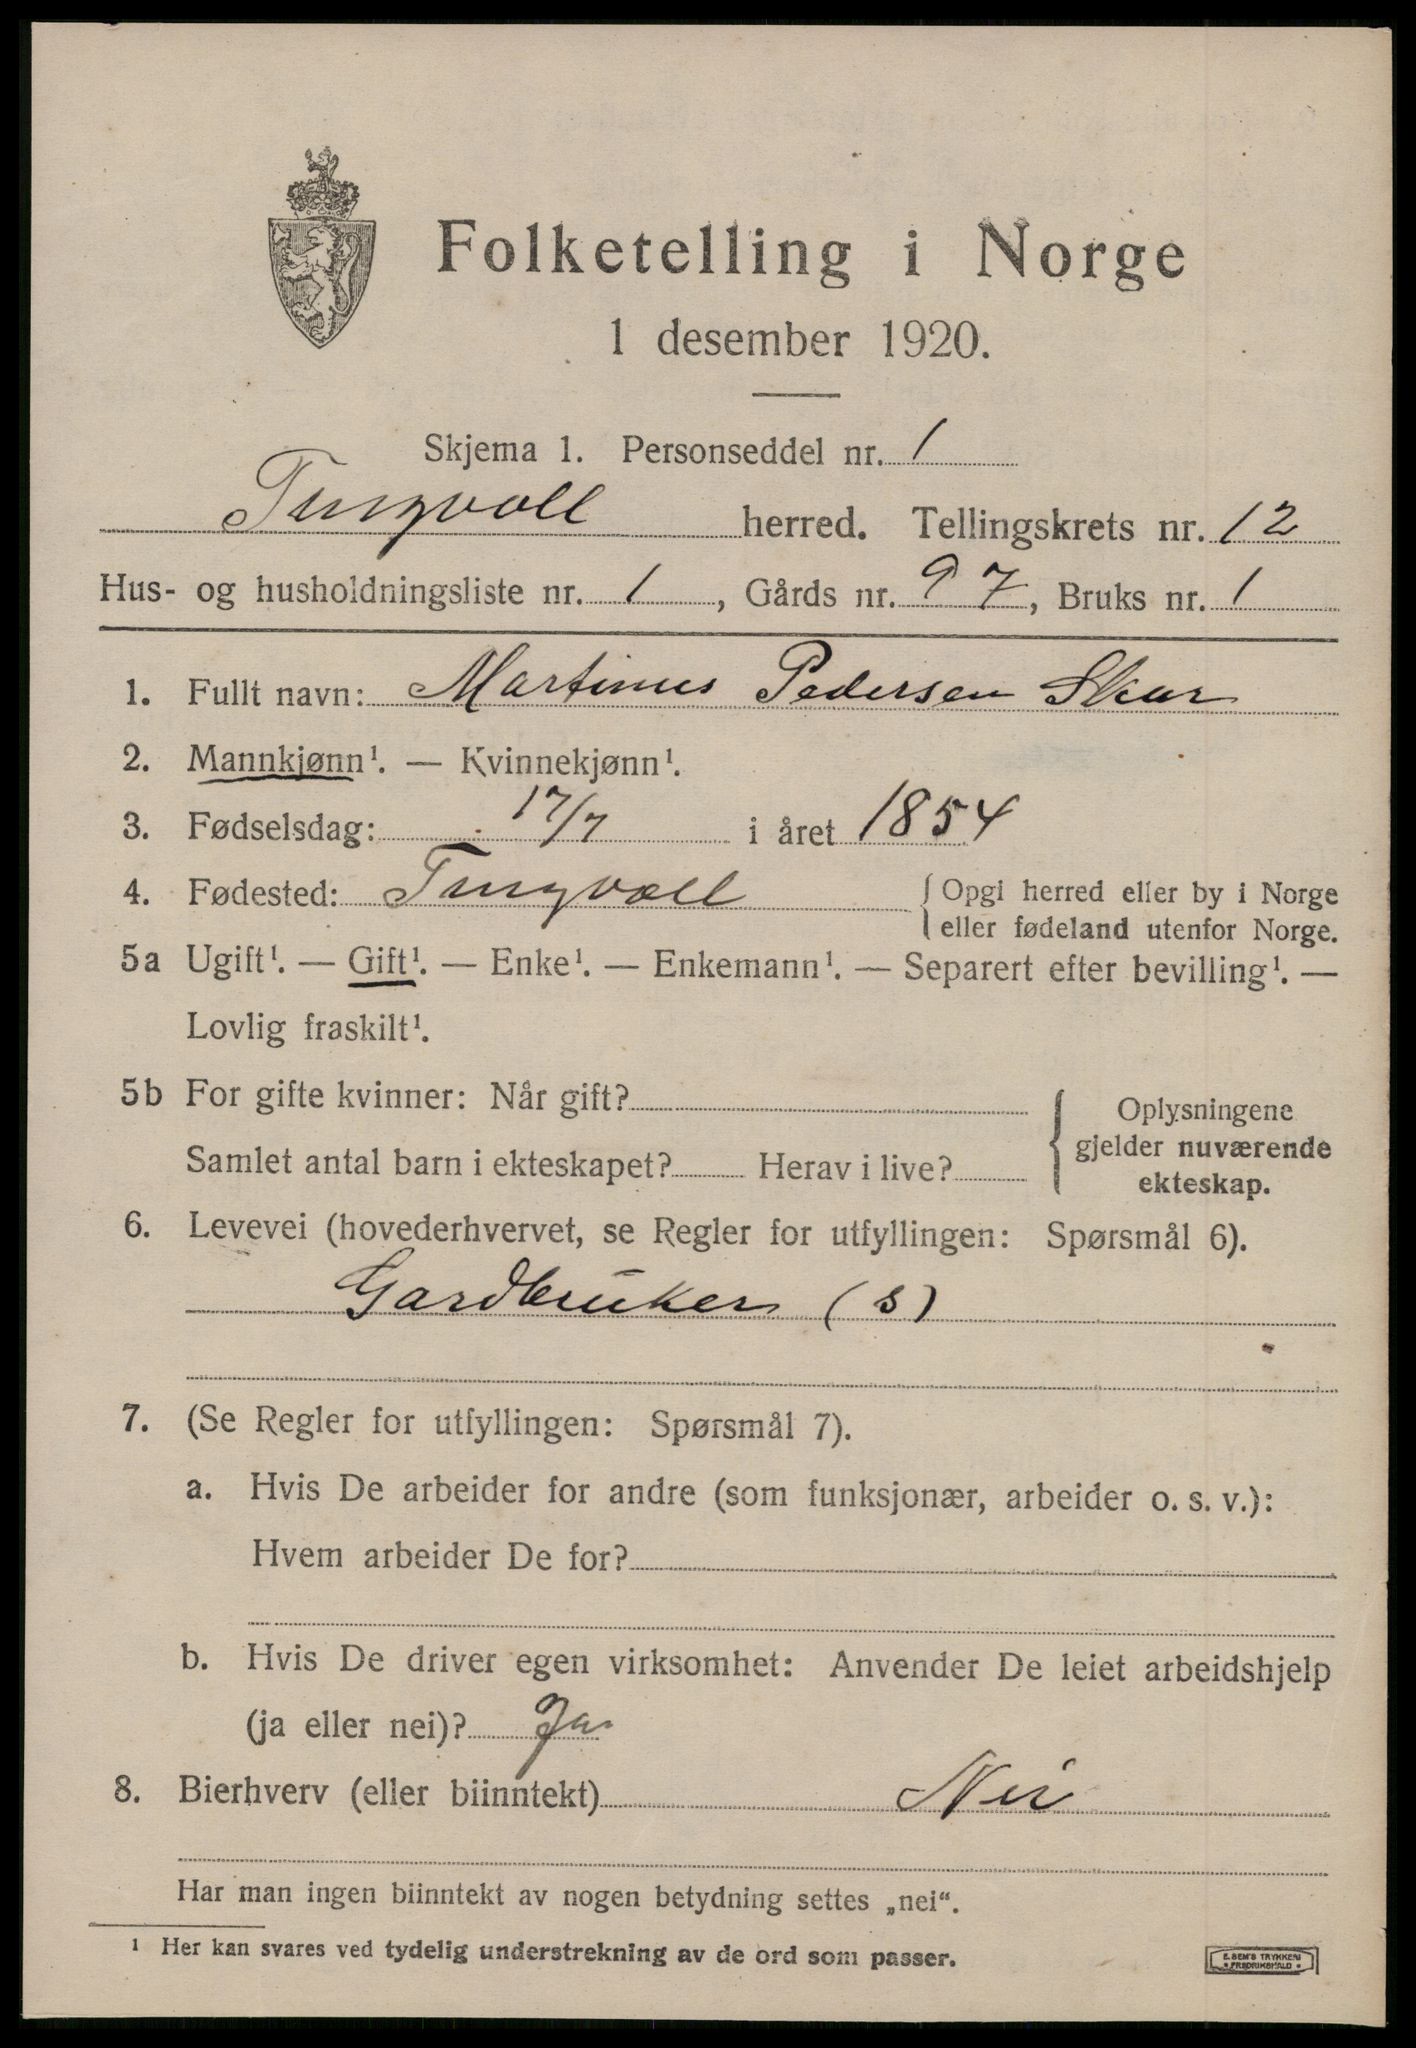 Folketelling i Norge
1 desember 1920.
Skjema 1. Personseddel nr. 1
Tingvoll herred. Tellingskrets nr. 12
Hus- og husholdningsliste nr. 1, Gårds nr. 97, Bruks nr. 1
1. Fullt navn: Martinus Pedersen Skar
2. Mannkjønn¹. — Kvinnekjønn¹.
3. Fødselsdag: 17/7 i året 1854
4. Fødested: Tingvoll { Opgi herred eller by i Norge
eller fødeland utenfor Norge.
5a Ugift¹. — Gift¹. — Enke¹. — Enkemann¹. — Separert efter bevilling¹. —
Lovlig fraskilt¹.
5b For gifte kvinner: Når gift?
Samlet antal barn i ekteskapet? Herav i live?
{ Oplysningene
gjelder nuværende
ekteskap.
6. Levevei (hovederhvervet, se Regler for utfyllingen: Spørsmål 6).
Gardbruker (s)
7. (Se Regler for utfyllingen: Spørsmål 7).
a. Hvis De arbeider for andre (som funksjonær, arbeider o. s. v.):
Hvem arbeider De for?
b. Hvis De driver egen virksomhet: Anvender De leiet arbeidshjelp
(ja eller nei)? Ja
8. Bierhverv (eller biinntekt) Nei
Har man ingen biinntekt av nogen betydning settes „nei“.
¹ Her kan svares ved tydelig understrekning av de ord som passer.
E. SEM'S TRYKKERI
• FREDRIKSHALD •